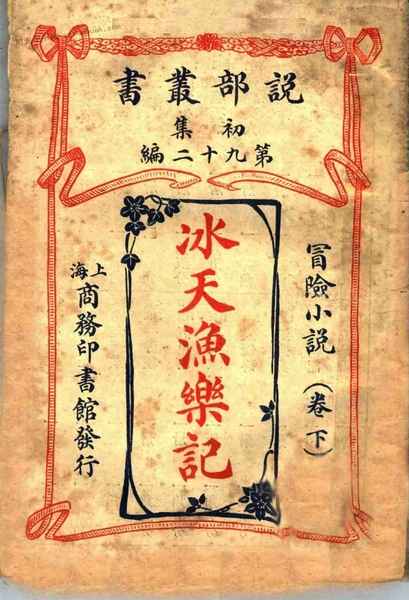 説部叢書
初集
第九十二編
冒險小説（卷下）
冰天漁樂記
上海商務印書館發行